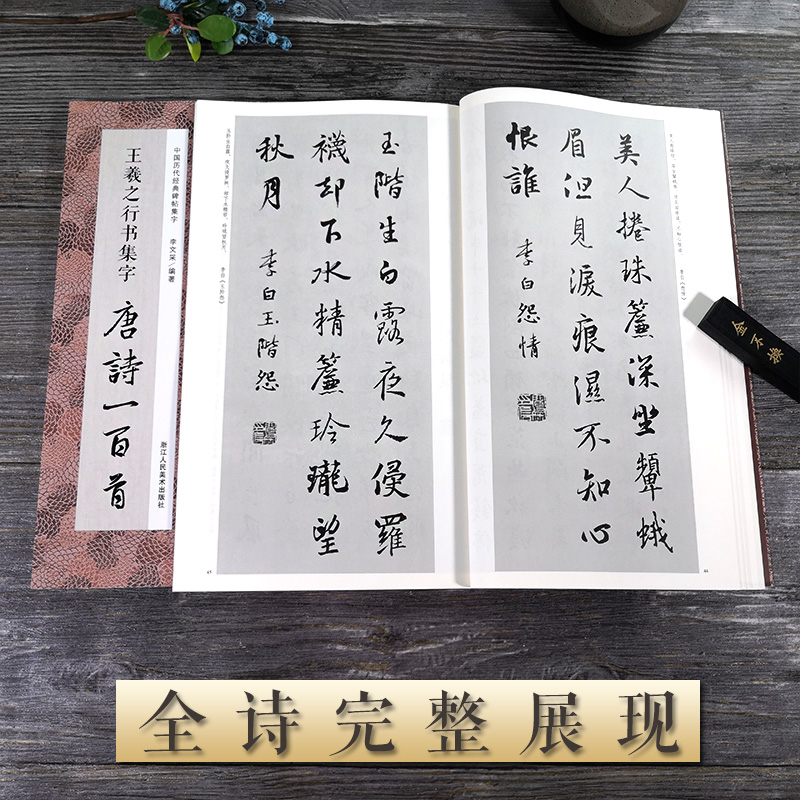 中国历代经典碑帖集字
李文采/编著
王羲之行书集字
唐詩一百首
浙江人民美术出版社
美人捲珠簾深坐顰蛾
眉但見淚痕濕不知心
恨誰
李白怨情
44
玉階生白露夜久侵羅
襪却下水精簾玲瓏望
秋月
李白玉階怨
45
金不换
全诗完整展现